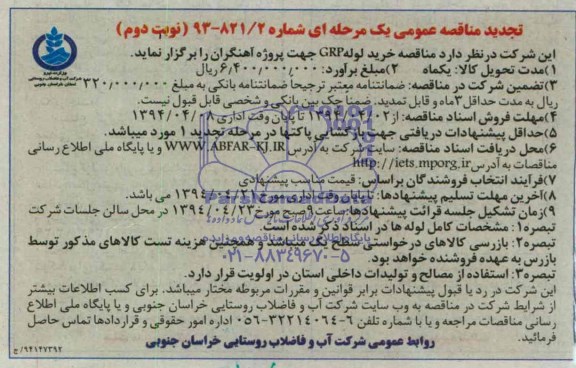 تجدید مناقصه عمومی یک مرحله ای شماره ۹۳-۸۲۱/۲ (نوبت دوم)
وزارت نیرو
شرکت آب و فاضلاب روستایی
استان خراسان جنوبی
این شرکت درنظر دارد مناقصه خرید لوله GRP جهت پروژه آهنگران را برگزار نماید.
۱)مدت تحویل کالا: یکماه ۲)مبلغ برآورد: ۶,۴۰۰,۰۰۰,۰۰۰ ریال
۳)تضمین شرکت در مناقصه: ضمانتنامه معتبر ترجیحا ضمانتنامه بانکی به مبلغ ۳۲۰,۰۰۰,۰۰۰
ریال به مدت حداقل ۳ماه و قابل تمدید. ضمنا چک بین بانکی و شخصی قابل قبول نیست.
۴)مهلت فروش اسناد مناقصه: از ۱۳۹۴/۰۴/۰۲ تا پایان وقت اداری ۱۳۹۴/۰۴/۰۸
۵)حداقل پیشنهادات دریافتی جهت بازگشایی پاکتها در مرحله تجدید ۱ مورد میباشد.
۶)محل دریافت اسناد مناقصه: سایت شرکت به آدرس WWW.ABFAR-KJ.IR و یا پایگاه ملی اطلاع رسانی
مناقصات به آدرس http://iets.mporg.ir
۷)فرآیند انتخاب فروشندگان براساس: قیمت مناسب پیشنهادی
۸)آخرین مهلت تسلیم پیشنهادها: تا پایان وقت اداری مورخ ۱۳۹۴/۰۴/۲۱ می باشد.
۹)زمان تشکیل جلسه قرائت پیشنهادها: ساعت ۹ صبح مورخ ۱۳۹۴/۰۴/۲۳ در محل سالن جلسات شرکت
تبصره۱: مشخصات کامل لوله ها در اسناد ذکر شده است.
تبصره۲: بازرسی کالاهای درخواستی سطح یک میباشد و همچنین هزینه تست کالاهای مذکور توسط
بازرس به عهده فروشنده خواهد بود.
۰۲۱-۸۸۳۴۹۶۷۰-۵
تبصره۳: استفاده از مصالح و تولیدات داخلی استان در اولویت قرار دارد.
این شرکت در رد یا قبول پیشنهادات برابر قوانین و مقررات مربوطه مختار میباشد. برای کسب اطلاعات بیشتر
از شرایط شرکت در مناقصه به وب سایت شرکت آب و فاضلاب روستایی خراسان جنوبی و یا پایگاه ملی اطلاع
رسانی مناقصات مراجعه و یا با شماره تلفن ۶-۳۲۲۱۴۰۶۴-۰۵۶ اداره امور حقوقی و قراردادها تماس حاصل
فرمائید.
روابط عمومی شرکت آب و فاضلاب روستایی خراسان جنوبی
۹۴۱۴۷۳۹۲/ج